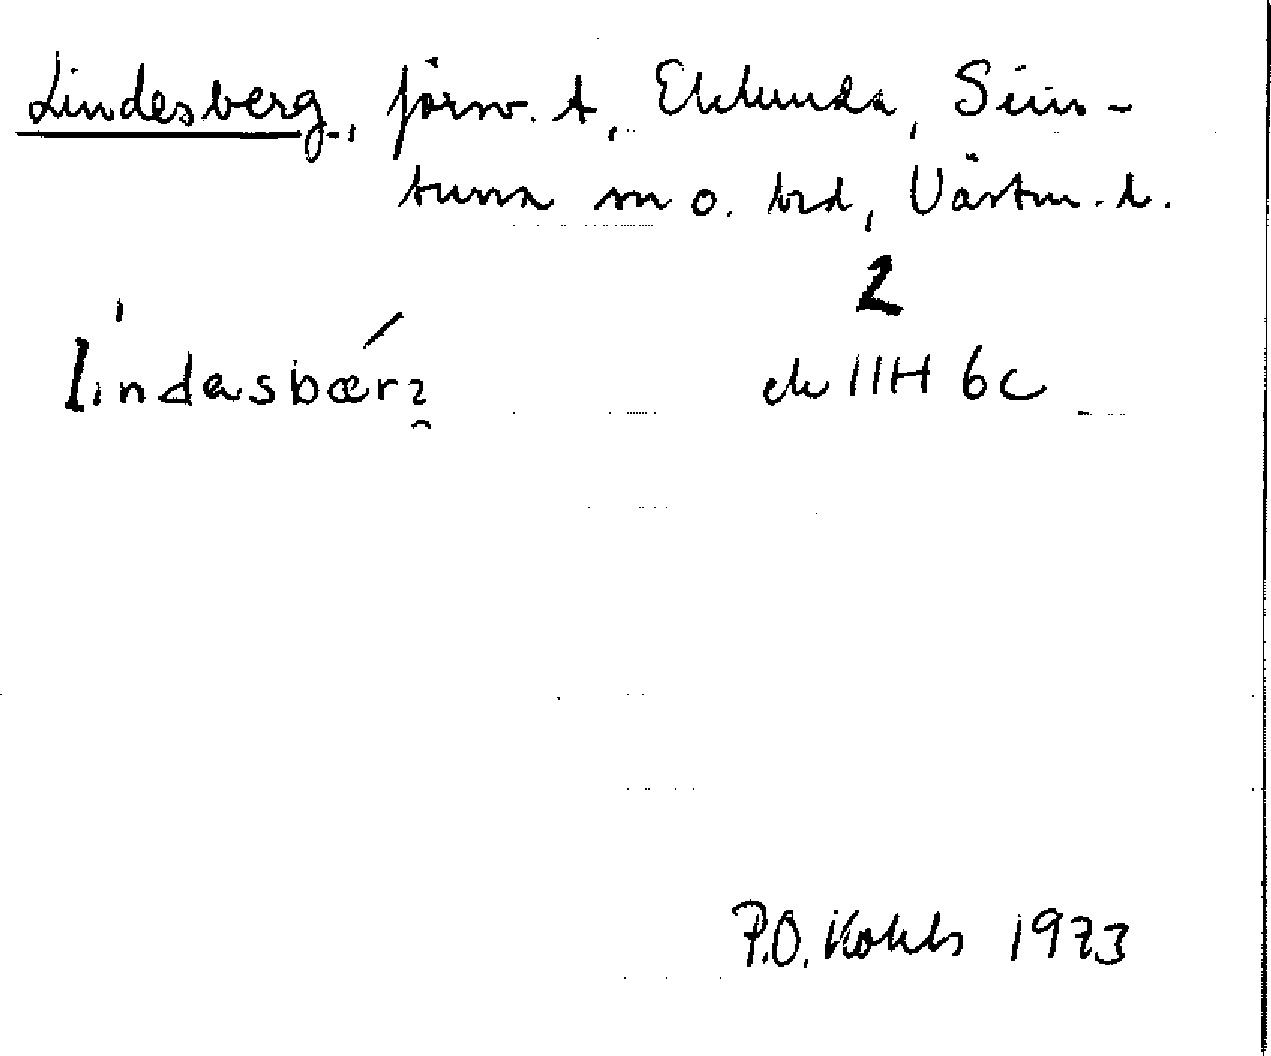 Lindesberg, försv. t, Eklunda, Sim-
tuna sn o. hd, Västm. l.
2
lindasbær
ek 11H 6c
P.O. Kohls 1973